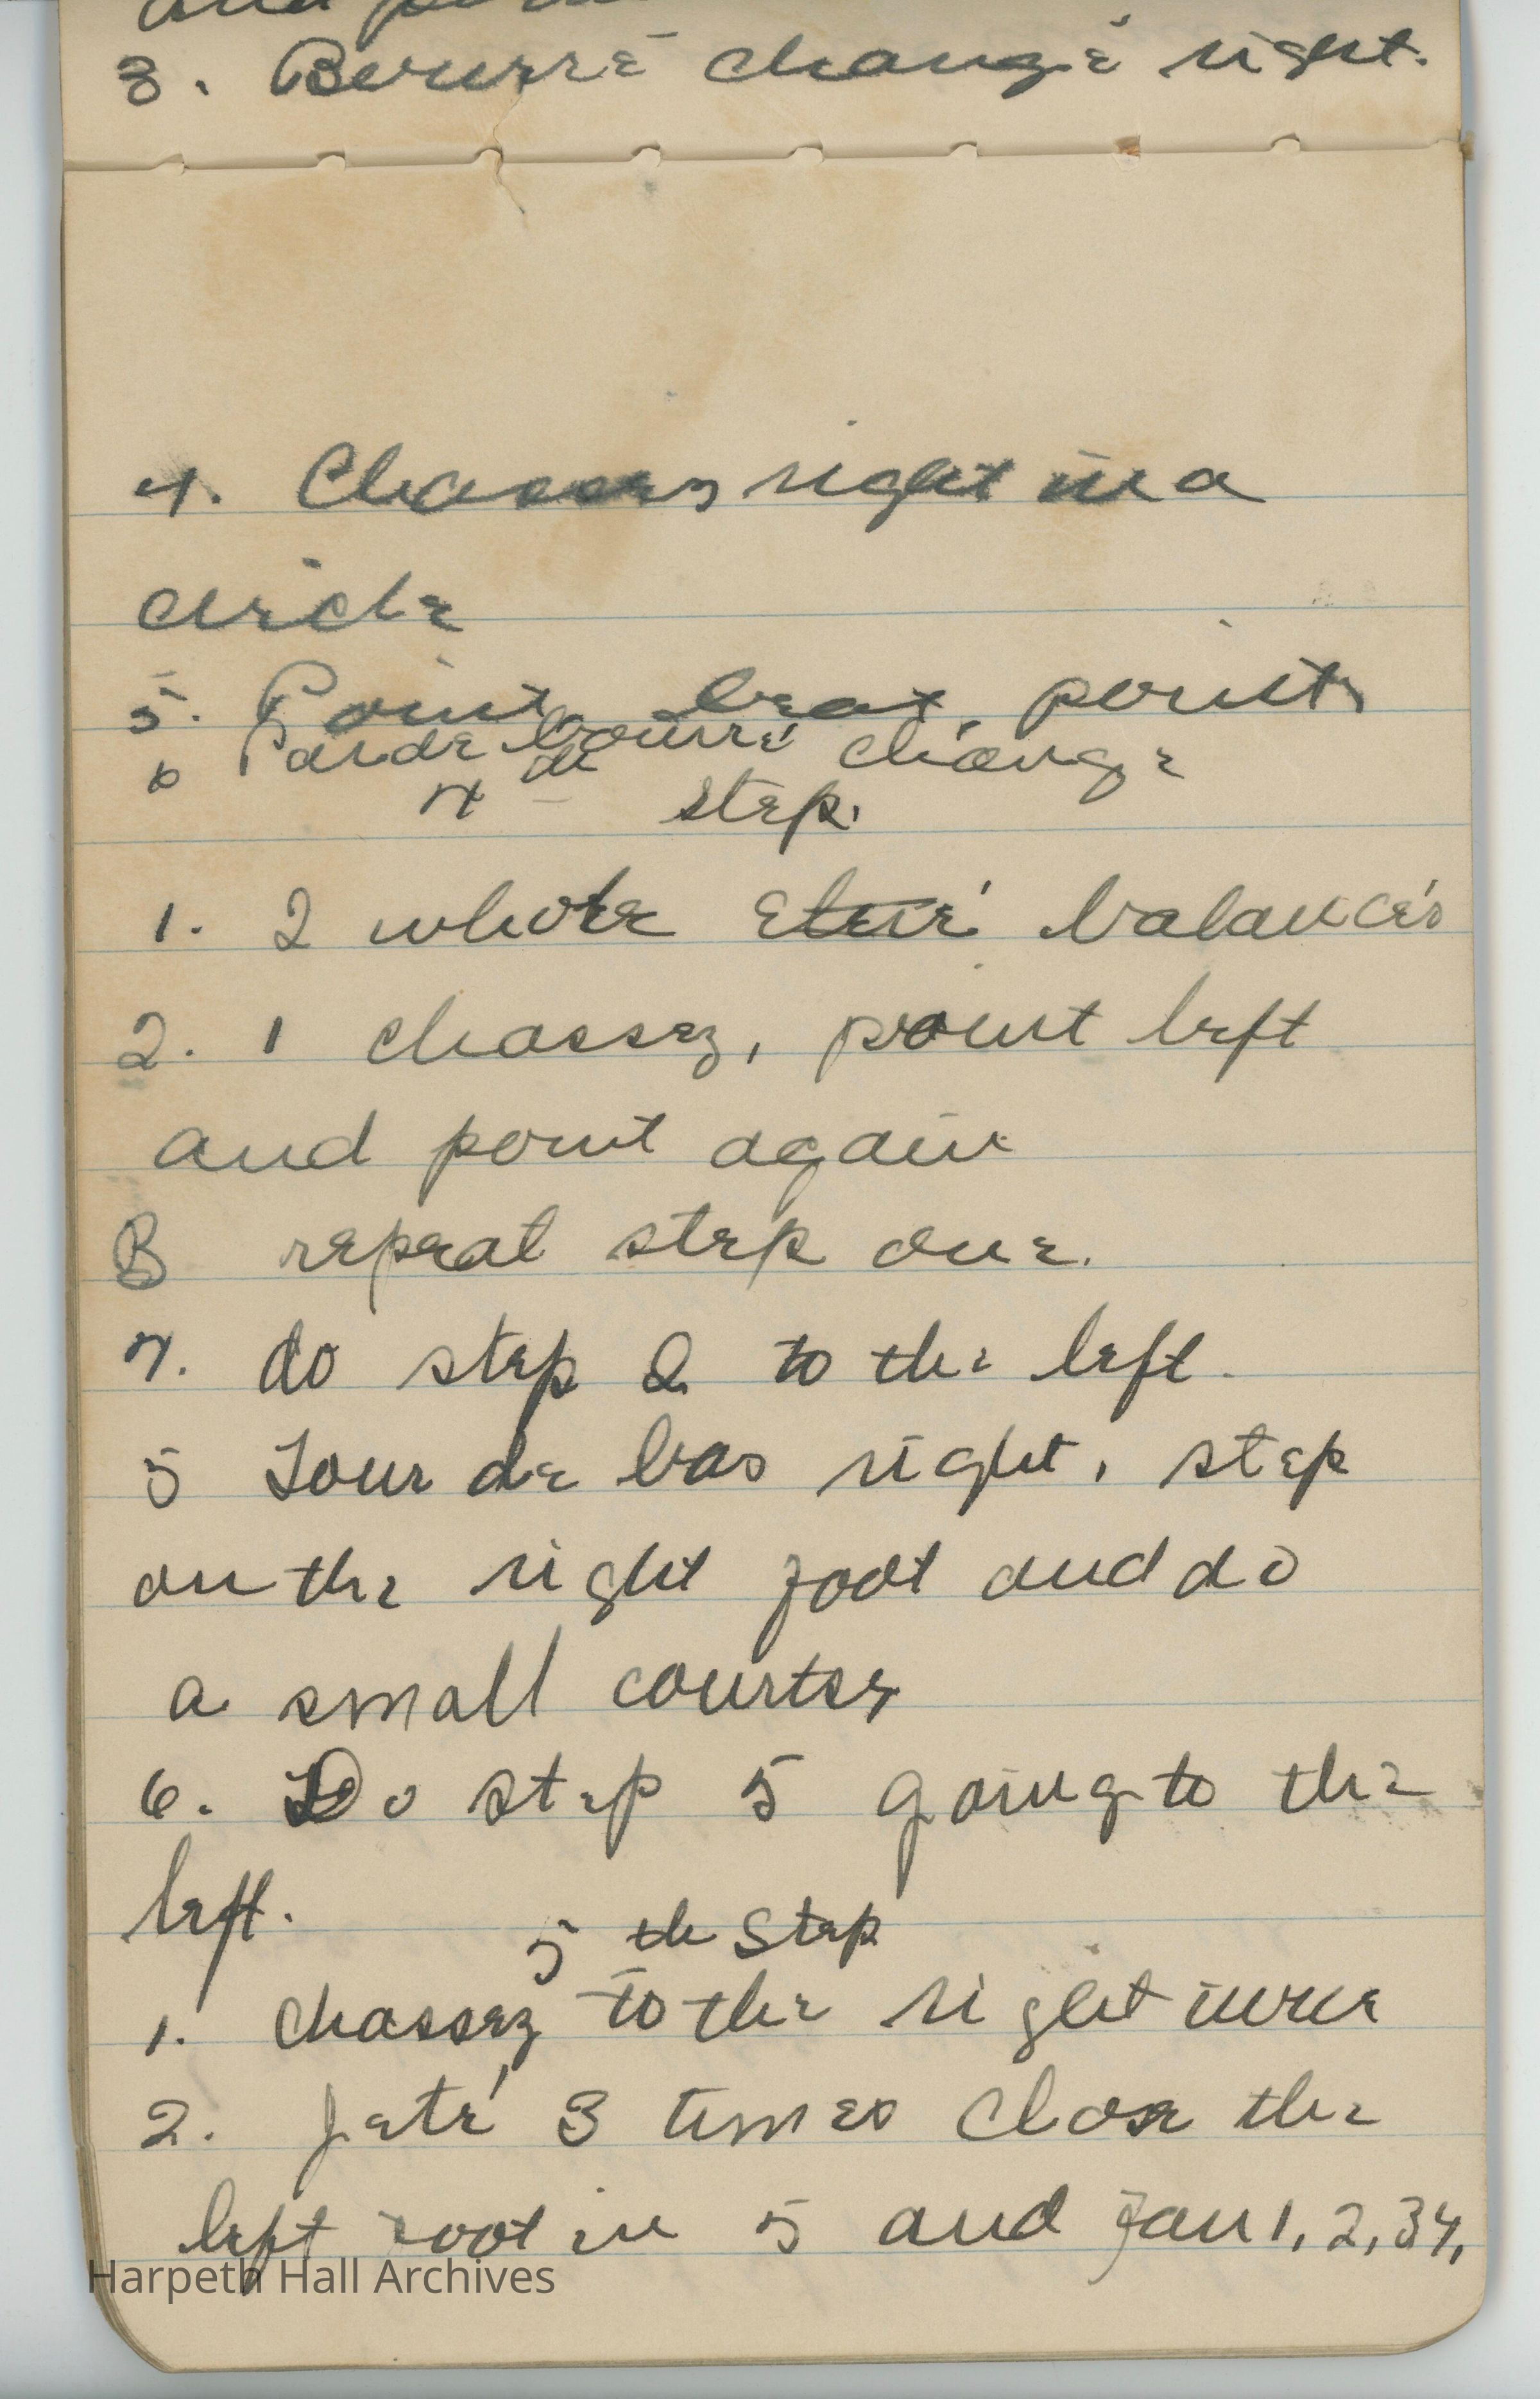 and
3. Bourré changé right.
4. Chassez right in a
circle
5. Point, beat, point,
6 Pas de bourré change
4th step.
1. 2 whole balancés
2. 1 chassez, point left
and point again
3 repeat step one.
4. do step 2 to the left.
5 Tour de bas right, step
on the right foot and do
a small courtsy
6. Do step 5 going to the
left.
5 th Step
1. Chassez to the right
2. Jeté 3 times close the
left foot in 5 and fan 1, 2, 3 4,
Harpeth Hall Archives